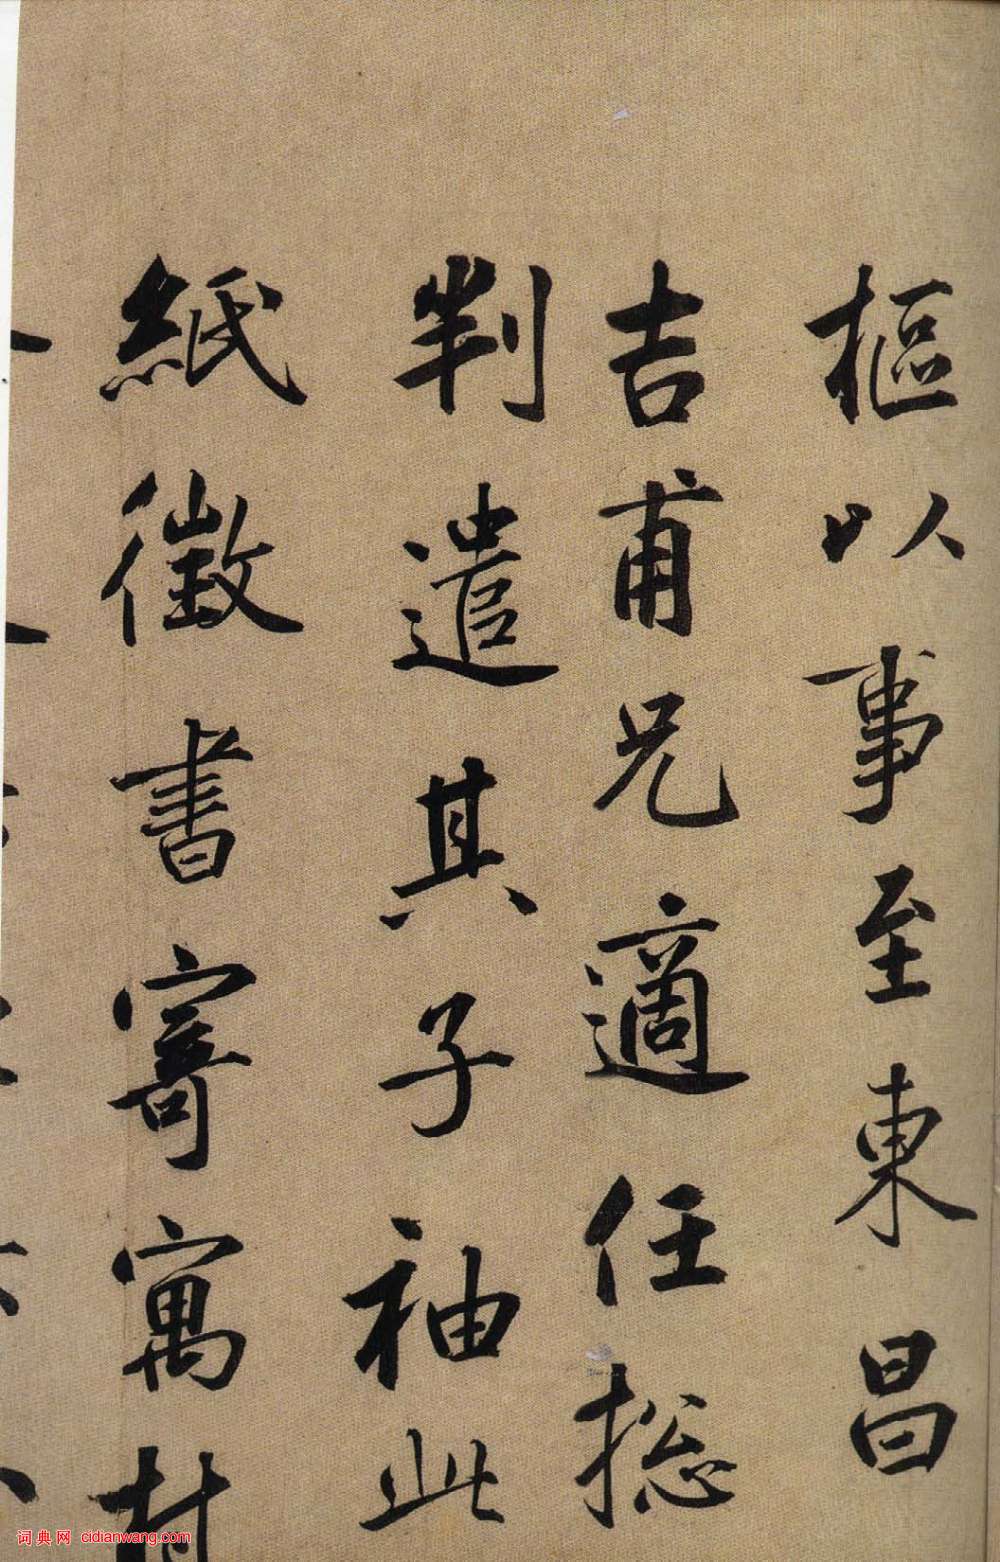 樞以事至東昌
吉甫兄適任揔
判遣其子袖此
紙徵書寄寓
词典网 cidianwang.com